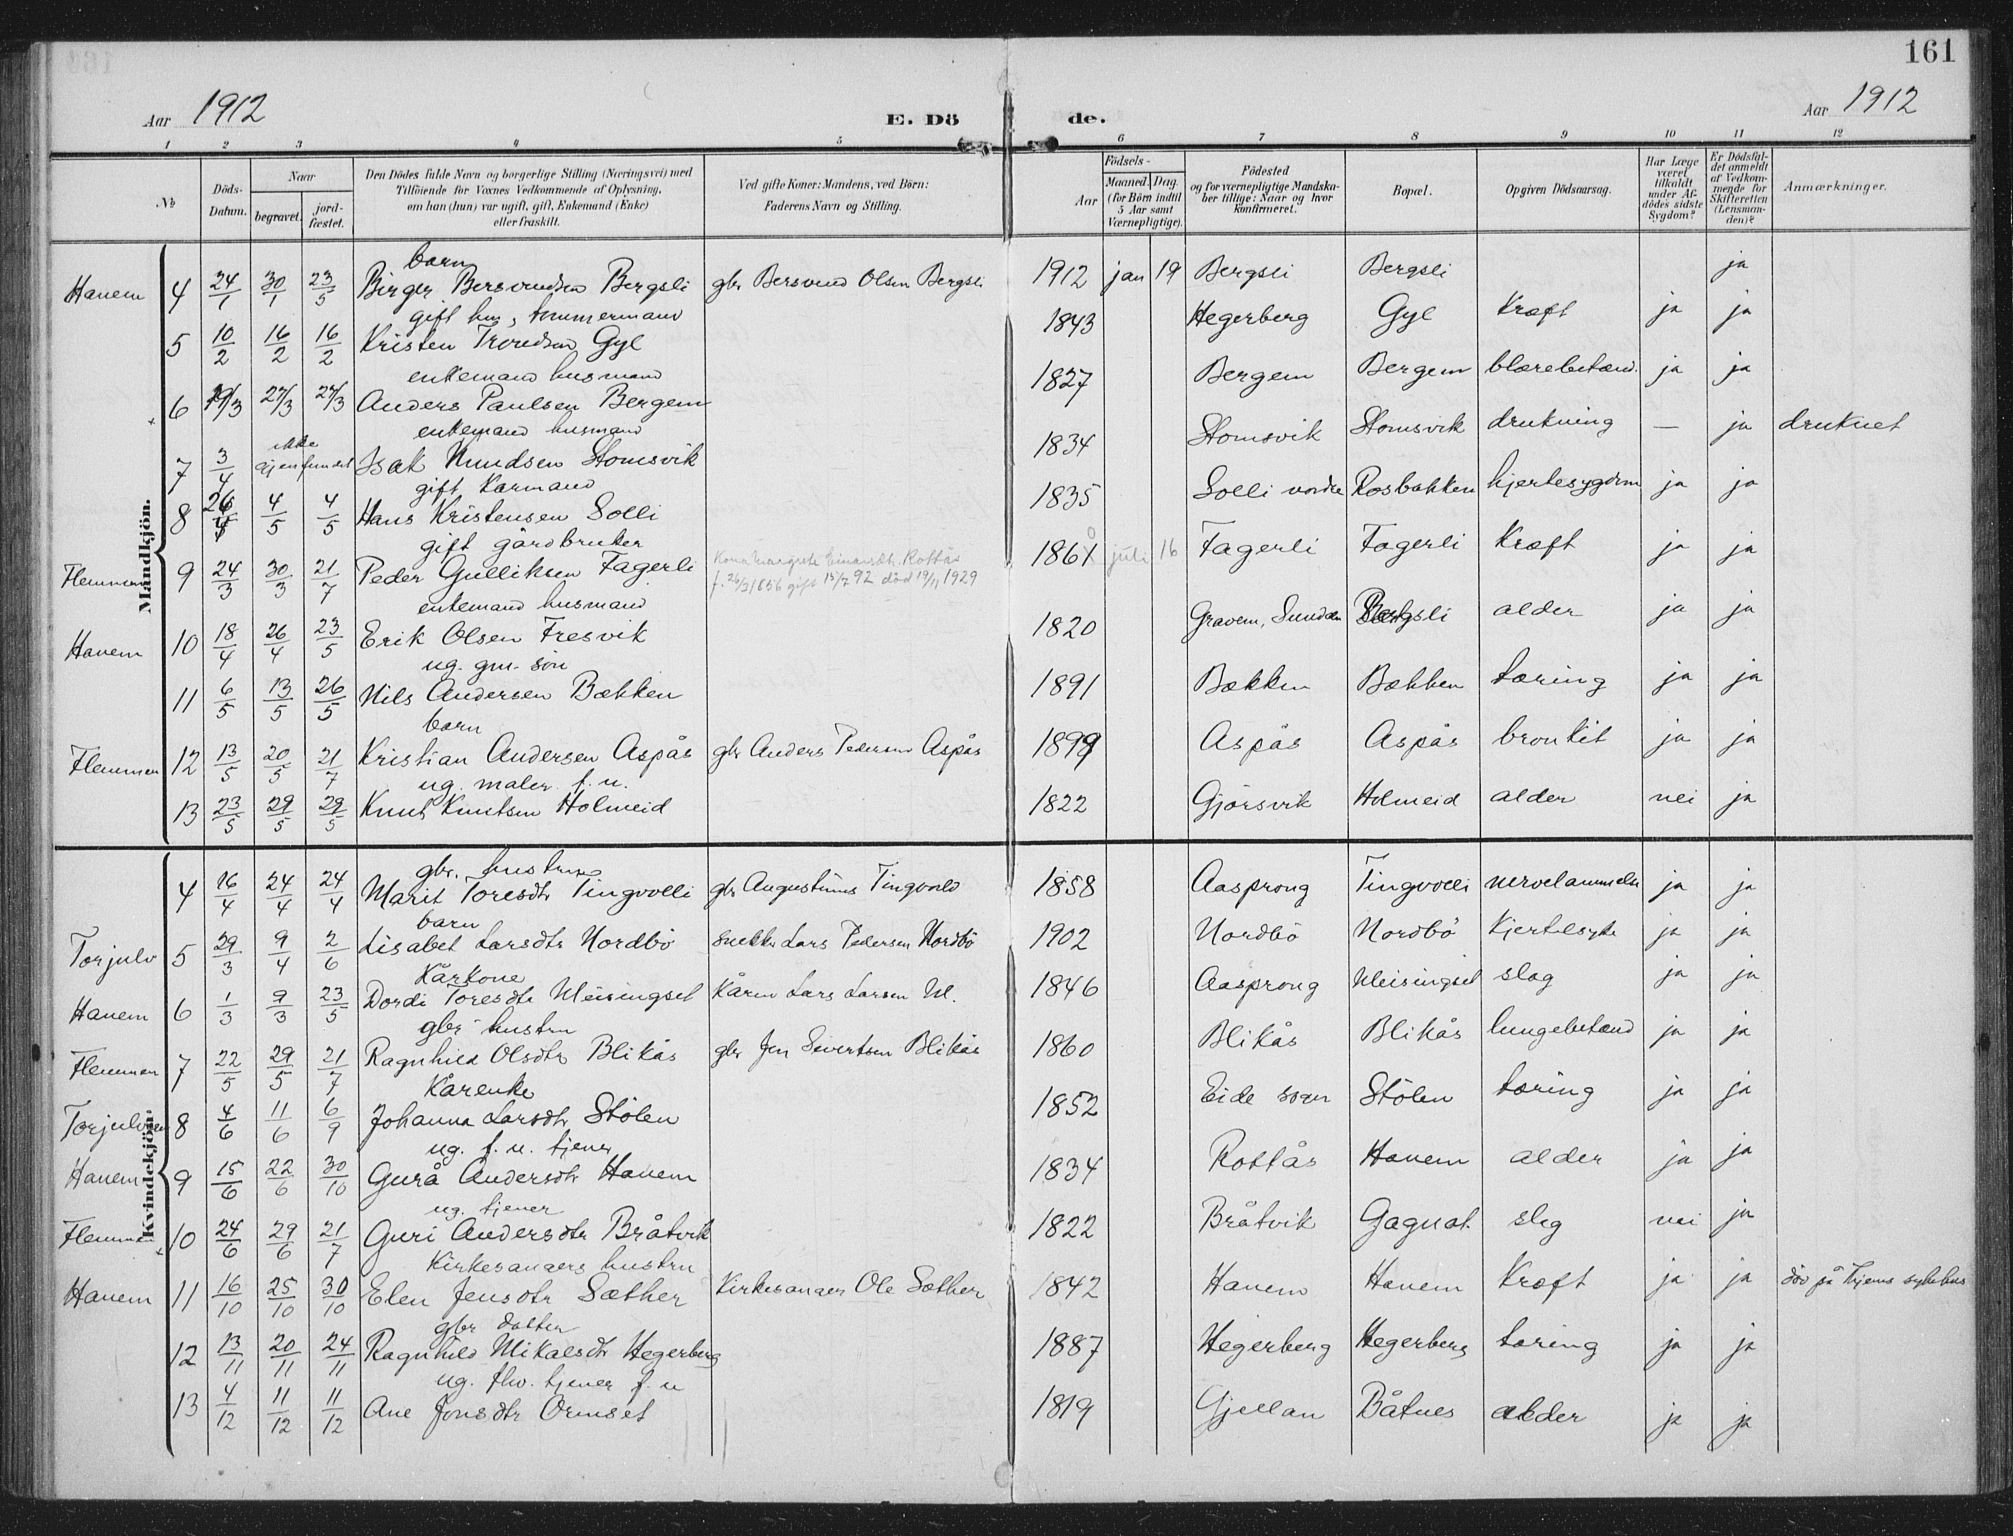 161
Aar 1912 E. Dö de. Aar 1912
1 2 3 4 5 6 7 8 9 10 11 12
No
Döds-Datum.
Naar
begravet.
jord-fæstet.
Den Dödes fulde Navn og borgerlige Stilling (Næringsvei) med
Tilföiende for Voxnes Vedkommende af Oplysning,
om han (hun) var ugift, gift, Enkemand (Enke)
eller fraskilt.
Ved gifte Koner: Mandens, ved Börn:
Faderens Navn og Stilling.
Födsels-
Aar
Maaned. Dag.
(for Börn indtil
5 Aar samt
Værnepligtige).
Födested
og for værnepligtige Mandska-
ber tillige: Naar og hvor
konfirmeret.
Bopæl.
Opgiven Dödsaarsag.
Har Læge
været
tilkaldt
under Af-
dödes sidste
Sygdom?
Er Dödsfal-
det anmeldt
af Vedkom-
mende for
Skifteretten
(Lensman-
den)?
Anmærkninger.
Mandkjön.
barn
Hanem 4 24/1 30/1 23/5 Birger Bersvendsen Bergsli gbr Bersvend Olsen Bergsli 1912 jan 19 Bergsli Bergsli ja
gift hus, tømmermand
5 10/2 16/2 16/2 Kristen Trondsen Gyl 1843 Hegerberg Gyl Kræft ja ja
enkemand husmand
6 27/3 27/3 Anders Paulsen Bergem 1827 Bergem Bergem blærebetænd. ja ja
enkemand husmand
7 3/4 ikke gjenfundet Isak Knudsen Stomsvik 1834 Stomsvik Stomsvik drukning — ja druknet
gift Kårmand
8 26/4 4/5 4/5 Hans Kristensen Solli 1835 Solli nordre Rosbakken hjertesygdom ja ja
gift gårdbruker
Flemmen 9 24/3 30/3 21/7 Peder Gulliksen Fagerli Kona Margrete Einarsdt. Rottås
f. 26/3 1856 gift 15/7 92 död 19/11 1929 186 juli 16 Fagerli Fagerli Kræft ja ja
enkemand husmand
Hanem 10 18/4 26/4 23/5 Erik Olsen Fresvik 1820 Gravem, Sundalen Bergsli alder ja ja
ug. gm. sön
11 6/5 13/5 26/5 Nils Andersen Bækken 1891 Bækken Bækken tæring ja ja
barn
Flemmen 12 13/5 20/5 21/7 Kristian Andersen Aspås gbr Anders Pedersen Aspås 1899 Aspås Aspås bronkit ja ja
ug. maler f. u.
13 23/5 29/5 29/5 Knut Knutsen Holmeid 1822 Gjörsvik Holmeid alder nei ja
Kvindekjön.
gbr. hustru
4 16/4 24/4 24/4 Marit Toresdtr Tingvolli gbr Augustinus Tingvold 1858 Aasprong Tingvolli nervelammelse ja ja
barn
Torjulv 5 29/3 9/4 2/6 Lisabet Larsdtr Nordbö snekker Lars Pedersen Nordbö 1902 Nordbö Nordbö Kjertelsyke ja ja
Kårkone
Hanem 6 1/3 9/3 23/5 Dordi Toresdtr Meisingset Kårm Lars Larsen M. 1846 Aasprong Meisingset slag ja ja
gbr hustru
Flemmen 7 22/5 29/5 21/7 Ragnhild Olsdtr Blikås gbr Jon Sivertsen Blikås 1860 Blikås Blikås lungebetænd ja ja
Kårenke
Torjulvsen 8 4/6 11/6 6/9 Johanna Larsdtr Stölen 1852 Eide sogn Stölen tæring ja ja
ug. f. u. tjener
Hanem 9 15/6 22/6 30/10 Gurå Andersdtr Hanem 1834 Rottås Hanem alder ja ja
ug. tjener
Flemmen 10 24/6 29/6 21/7 Guri Andersdtr Bråtvik 1822 Bråtvik Gagnat slag nei ja
Kirkesangers hustru
Hanem 11 16/10 25/10 30/10 Elen Jensdtr Sæther Kirkesanger Ole Sæther 1842 Hanem Hanem Kræft ja ja död på Trjems sykehus
gbr datter
12 13/11 20/11 24/11 Ragnhild Mikalsdtr Hegerberg 1887 Hegerberg Hegerberg tæring ja ja
ug. fhv. tjener f. u
13 4/12 11/12 11/12 Ane Jonsdtr Ormset 1819 Gjullan Båtnes alder ja ja